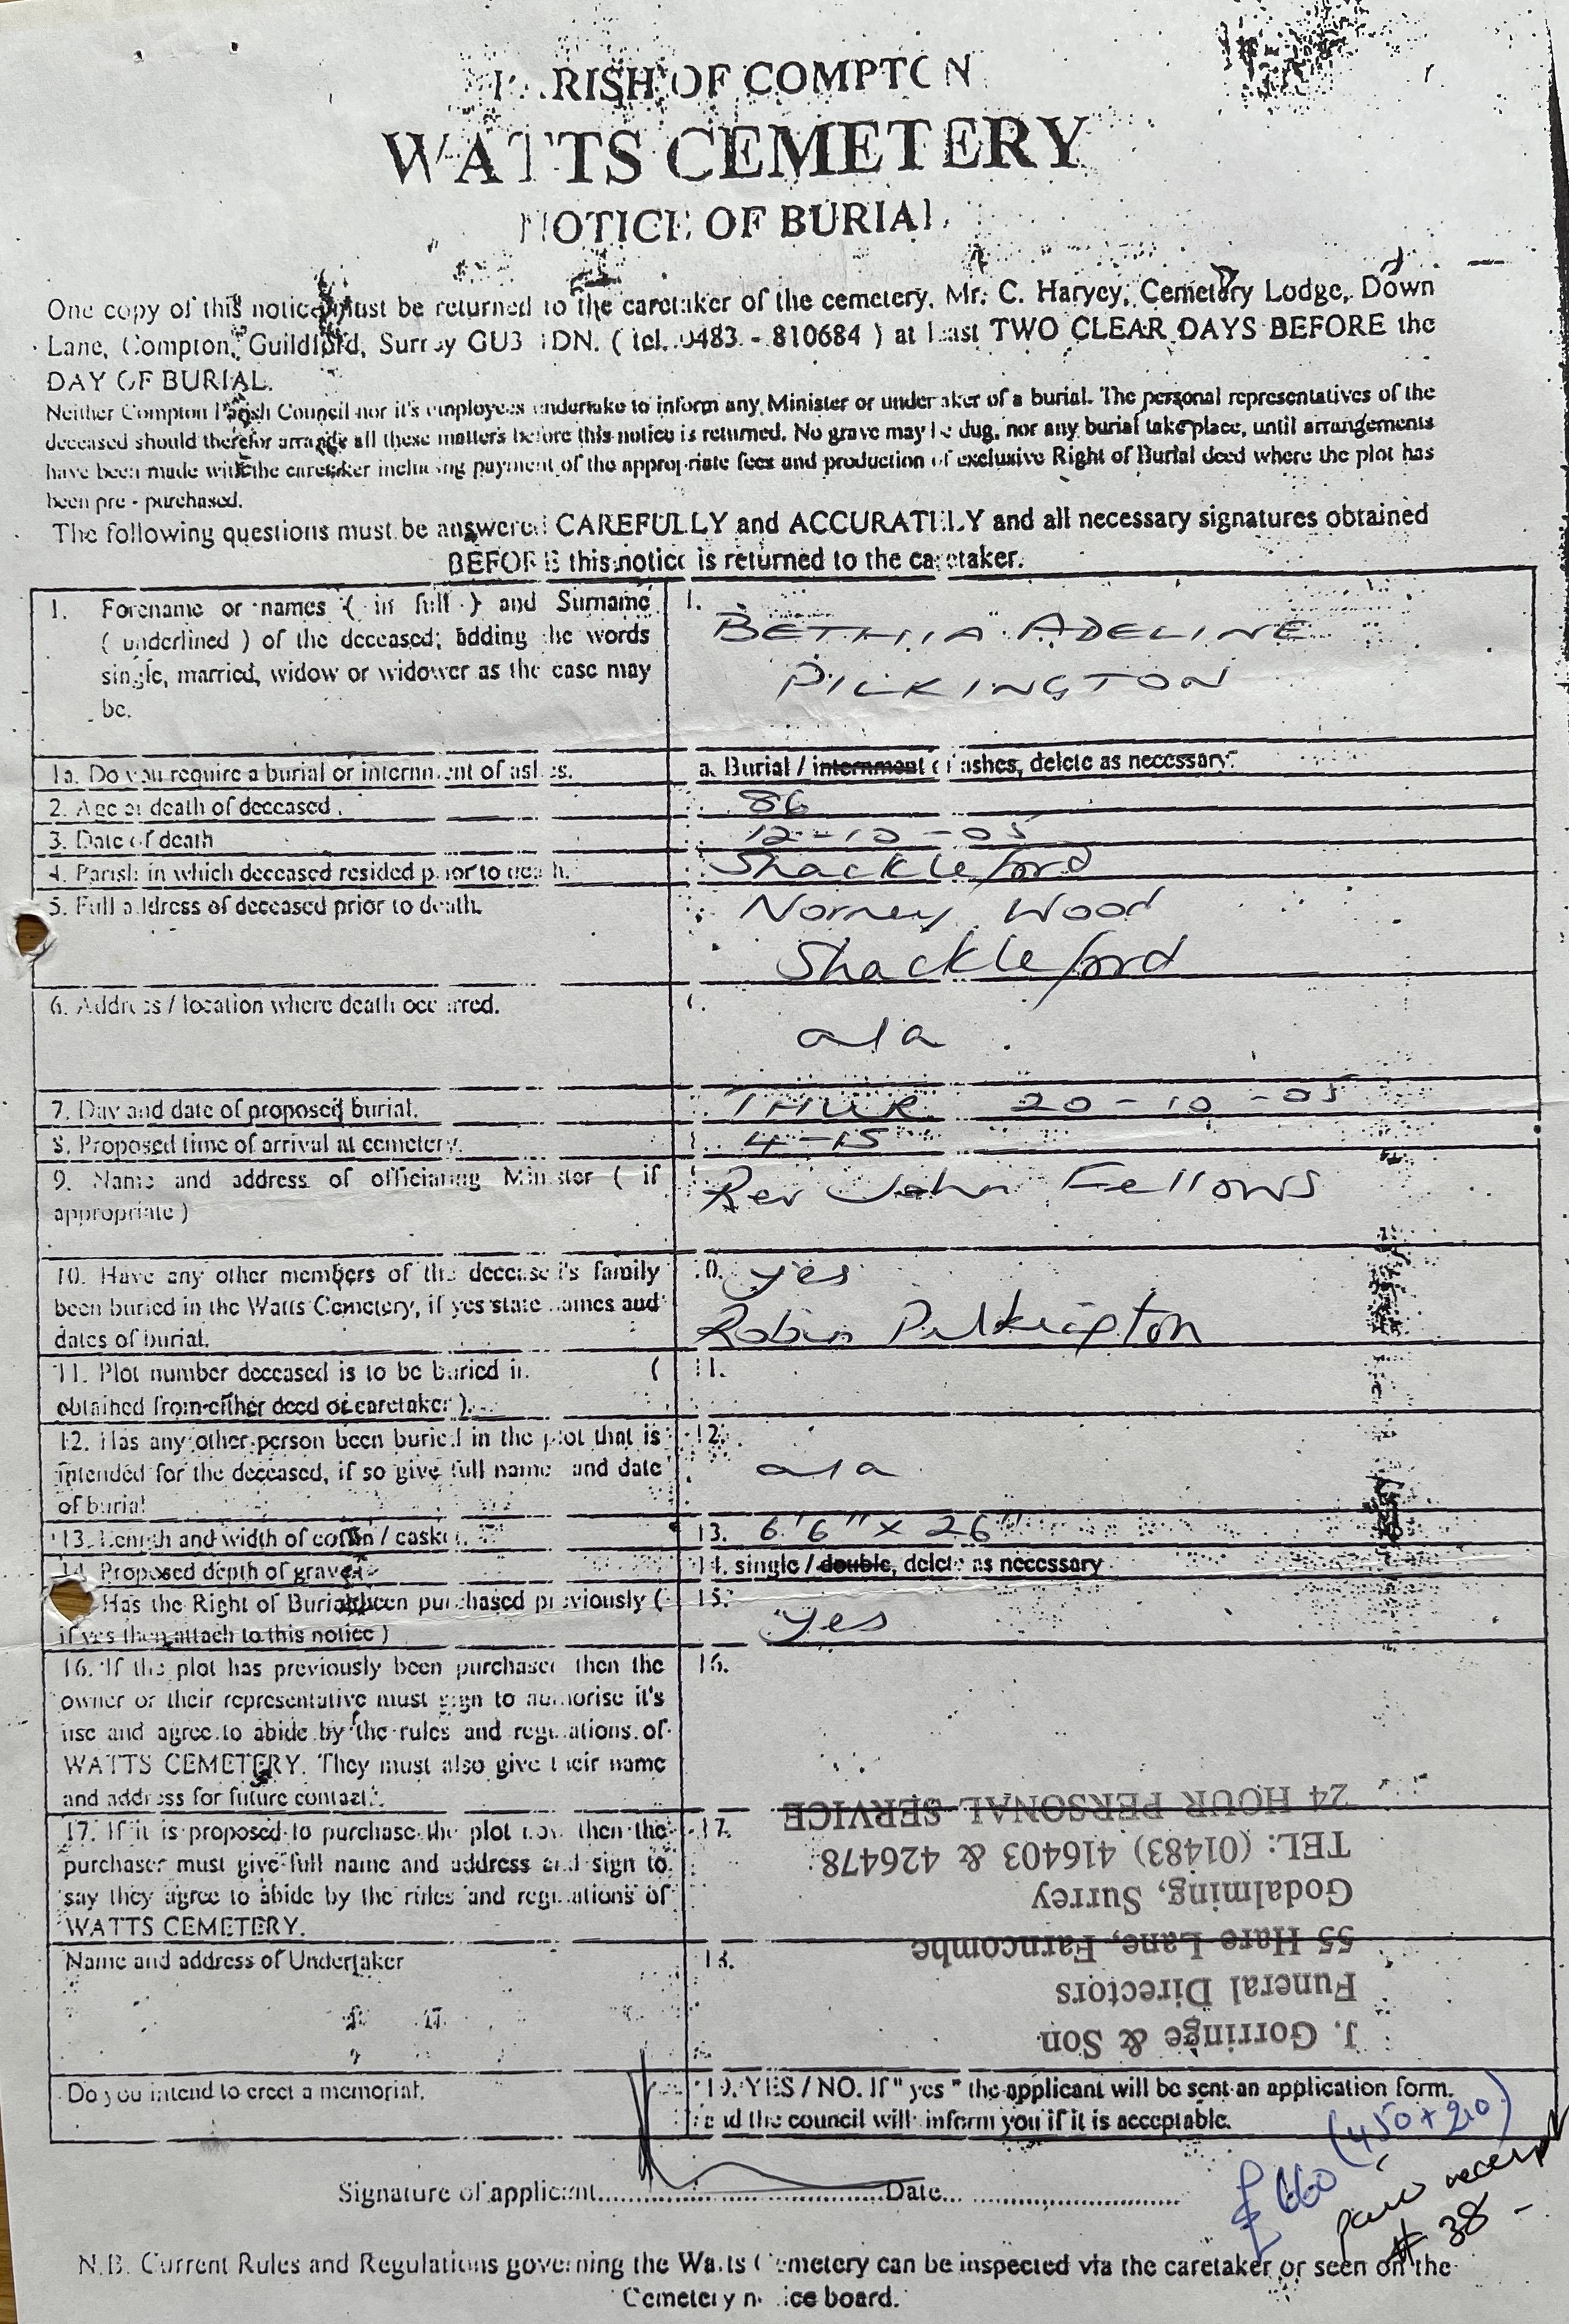 PARISH OF COMPTON
WATTS CEMETERY
NOTICE OF BURIAL
One copy of this notice must be returned to the caretaker of the cemetery, Mr. C. Harvey, Cemetery Lodge, Down
Lane, Compton, Guildford, Surrey GU3 1DN. ( tel. 0483 - 810684 ) at Least TWO CLEAR DAYS BEFORE the
DAY OF BURIAL.
Neither Compton Parish Council nor it's employees undertake to inform any Minister or undertaker of a burial. The personal representatives of the
deceased should therefor arrange all these matters before this notice is returned. No grave may be dug, nor any burial take place, until arrangements
have been made with the caretaker including payment of the appropriate fees and production of exclusive Right of Burial deed where the plot has
been pre - purchased.
The following questions must be answered CAREFULLY and ACCURATELY and all necessary signatures obtained
BEFORE this notice is returned to the caretaker.
1. Forename or names ( in full ) and Surname
( underlined ) of the deceased; adding the words
single, married, widow or widower as the case may
be.
1.
BETHIA ADELINE
PILKINGTON
1a. Do you require a burial or internment of ashes.
a. Burial / internment of ashes, delete as necessary.
2. Age at death of deceased.
86
3. Date of death
12-10-05
4. Parish in which deceased resided prior to death.
Shackleford
5. Full address of deceased prior to death.
Norney Wood
Shackleford
6. Address / location where death occurred.
a/a
7. Day and date of proposed burial.
THUR 20-10-05
8. Proposed time of arrival at cemetery.
4-15
9. Name and address of officiating Minister ( if
appropriate )
Rev John Fellows
10. Have any other members of the deceased's family
been buried in the Watts Cemetery, if yes state names and
dates of burial.
10. yes
Robin Pilkington
11. Plot number deceased is to be buried in. (
obtained from either deed or caretaker ).
11.
12. Has any other person been buried in the plot that is
intended for the deceased, if so give full name and date
of burial
12.
a/a
13. Length and width of coffin / casket.
13. 6'6" x 26"
14. Proposed depth of grave.
14. single / double, delete as necessary
Has the Right of Burial been purchased previously (
if yes then attach to this notice )
15.
yes
16. If the plot has previously been purchased then the
owner or their representative must sign to authorise it's
use and agree to abide by the rules and regulations of
WATTS CEMETERY. They must also give their name
and address for future contact.
16.
17. If it is proposed to purchase the plot now then the
purchaser must give full name and address and sign to
say they agree to abide by the rules and regulations of
WATTS CEMETERY.
17.
Name and address of Undertaker
18.
J. Gorringe & Son
Funeral Directors
55 Hare Lane, Farncombe
Godalming, Surrey
TEL: (01483) 416403 & 426478
24 HOUR PERSONAL SERVICE
Do you intend to erect a memorial.
19. YES / NO. If " yes " the applicant will be sent an application form.
and the council will inform you if it is acceptable.
Signature of applicant.................................Date.................................
£660 (450+210)
paid receipt
# 38 -
N.B. Current Rules and Regulations governing the Watts Cemetery can be inspected via the caretaker or seen on the
Cemetery notice board.